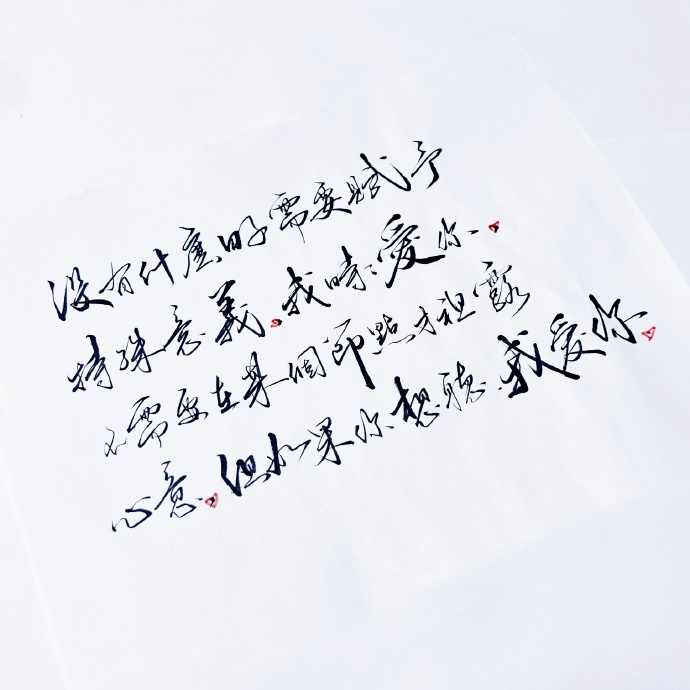 没有什麼日子需要賦予
特殊意義，我時時愛你，
不需要在某個節點才袒露
心意，但如果你想聽，我愛你。